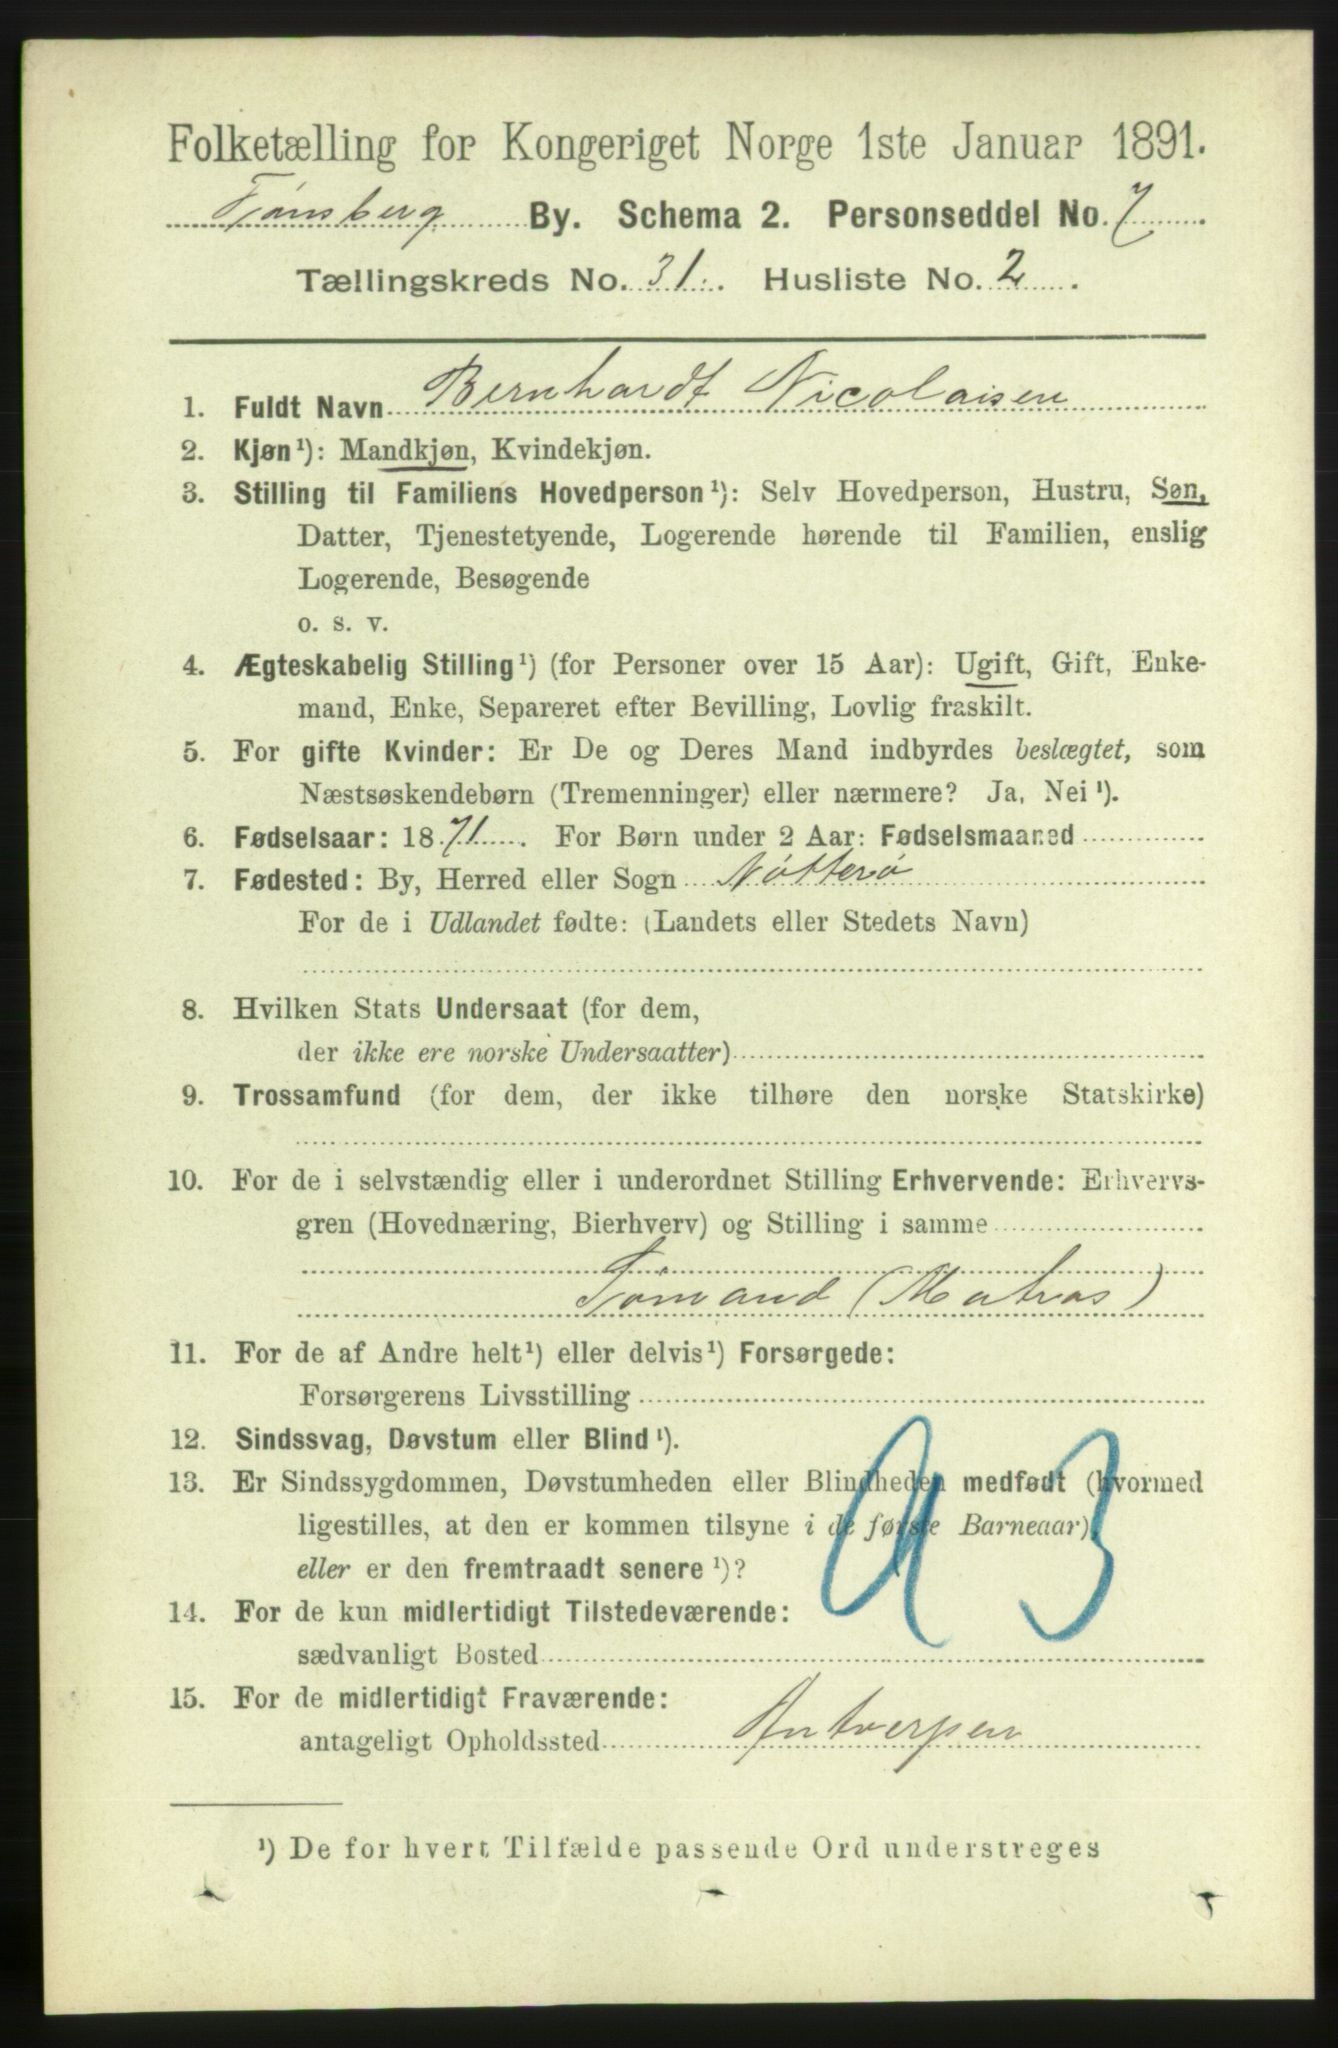 Folketælling for Kongeriget Norge 1ste Januar 1891.
Tønsberg By. Schema 2. Personseddel No. 7
Tællingskreds No. 31. Husliste No. 2.
1. Fuldt Navn Bernhardt Nicolaisen
2. Kjøn¹): Mandkjøn, Kvindekjøn.
3. Stilling til Familiens Hovedperson¹): Selv Hovedperson, Hustru, Søn,
Datter, Tjenestetyende, Logerende hørende til Familien, enslig
Logerende, Besøgende
o. s. v.
4. Ægteskabelig Stilling¹) (for Personer over 15 Aar): Ugift, Gift, Enke-
mand, Enke, Separeret efter Bevilling, Lovlig fraskilt.
5. For gifte Kvinder: Er De og Deres Mand indbyrdes beslægtet, som
Næstsøskendebørn (Tremenninger) eller nærmere? Ja, Nei¹).
6. Fødselsaar: 1871. For Børn under 2 Aar: Fødselsmaaned
7. Fødested: By, Herred eller Sogn Nötterö
For de i Udlandet fødte: (Landets eller Stedets Navn)
8. Hvilken Stats Undersaat (for dem,
der ikke ere norske Undersaatter)
9. Trossamfund (for dem, der ikke tilhøre den norske Statskirke)
10. For de i selvstændig eller i underordnet Stilling Erhvervende: Erhvervs-
gren (Hovednæring, Bierhverv) og Stilling i samme
Sömand (Matros)
11. For de af Andre helt¹) eller delvis¹) Forsørgede:
Forsørgerens Livsstilling
12. Sindssvag, Døvstum eller Blind¹).
13. Er Sindssygdommen, Døvstumheden eller Blindheden medfødt (hvormed
ligestilles, at den er kommen tilsyne i de første Barneaar)
eller er den fremtraadt senere¹)?
14. For de kun midlertidigt Tilstedeværende:
sædvanligt Bosted
15. For de midlertidigt Fraværende:
antageligt Opholdssted Antverpen
¹) De for hvert Tilfælde passende Ord understreges